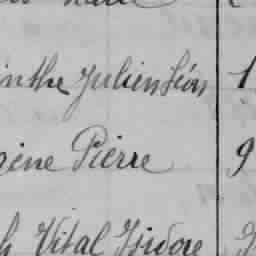 inthe Julien Léon 1
gène Pierre 9
h Vital Isidore